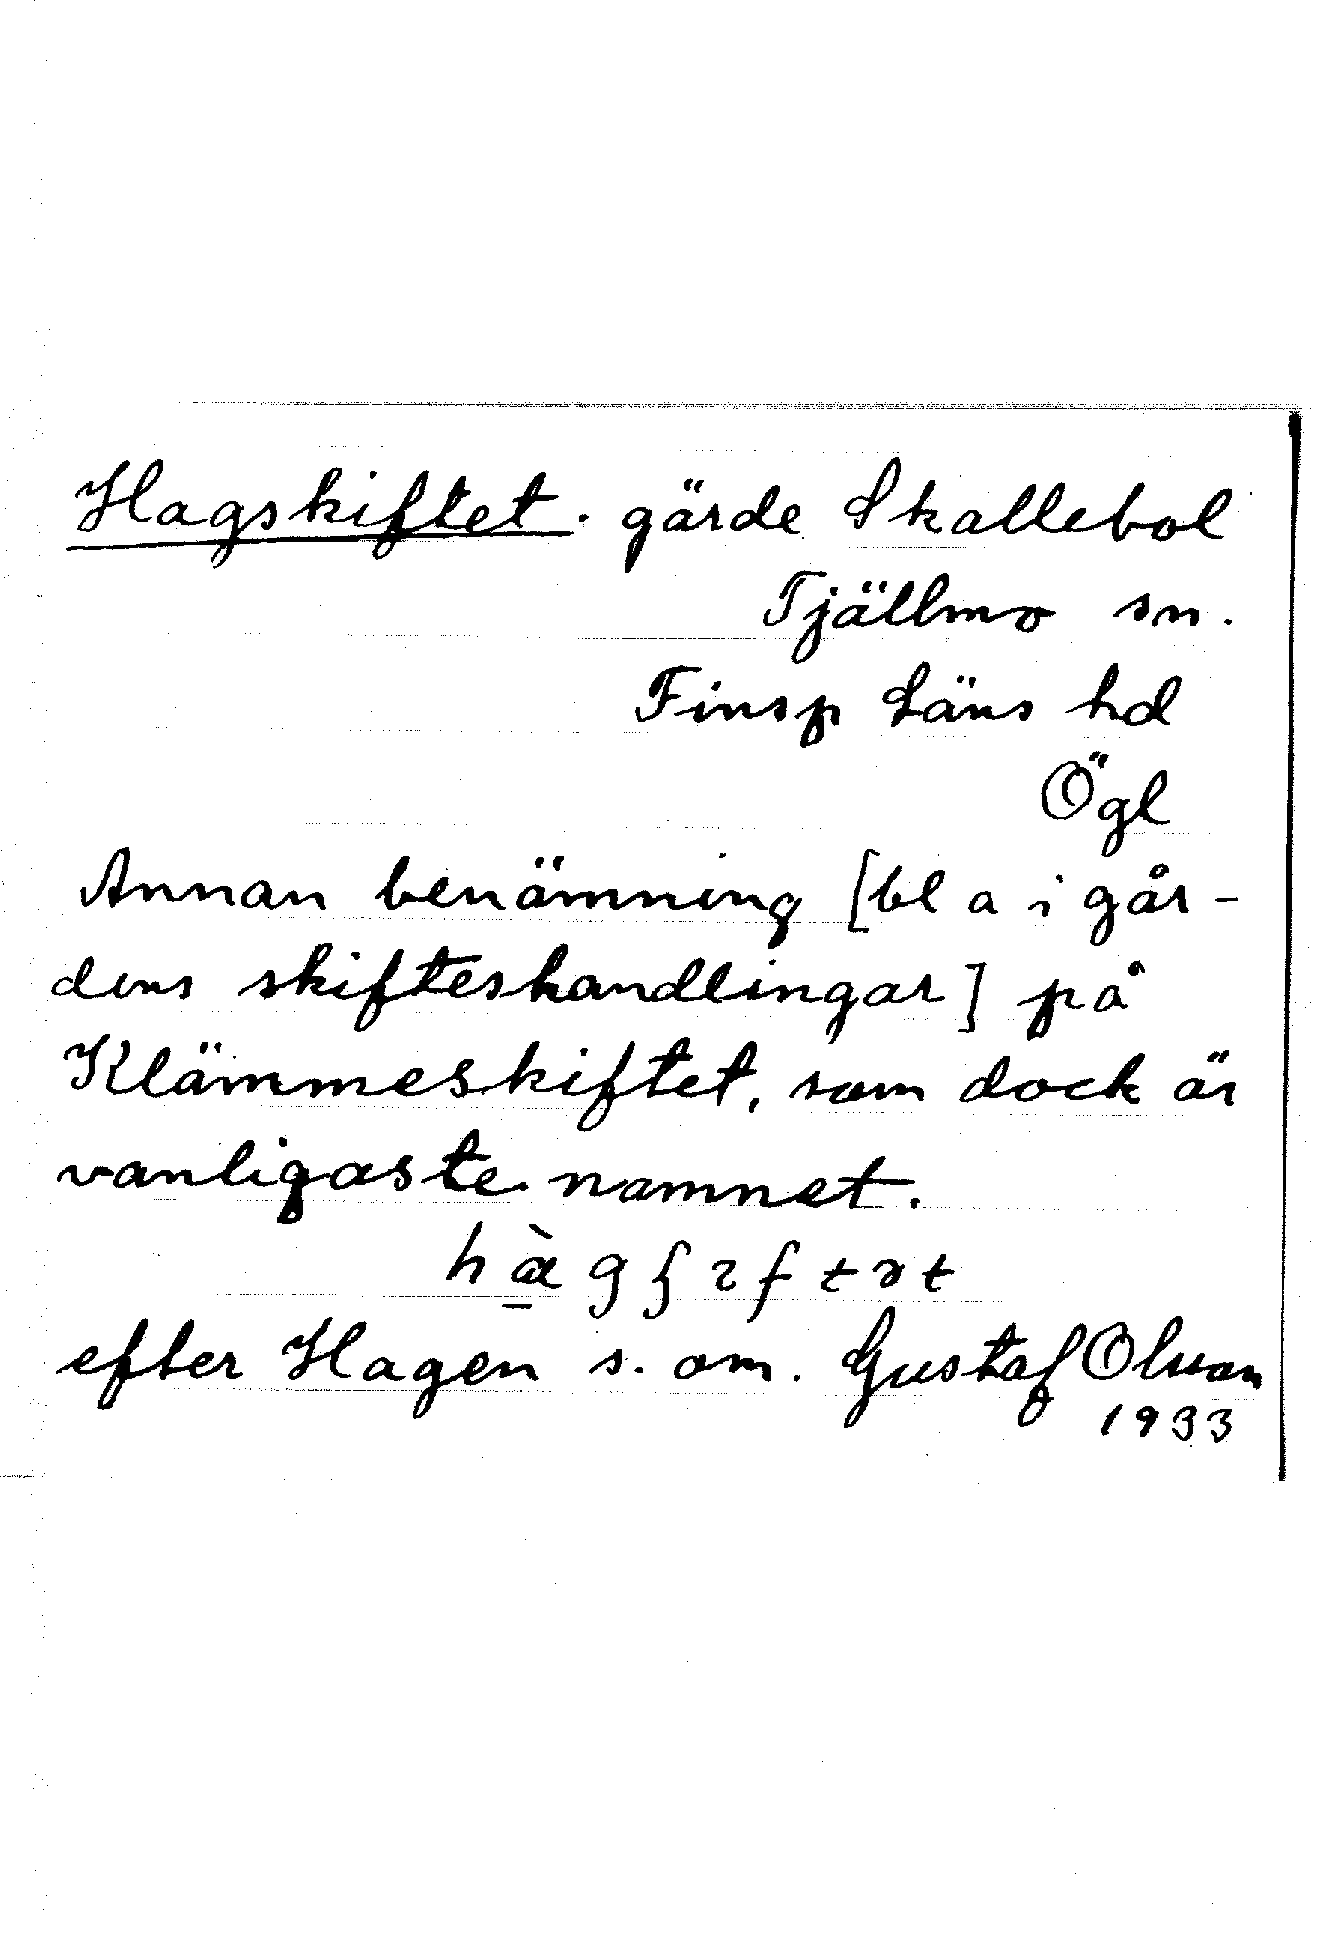 Hagskiftet. gärde Skallebol
Tjällmo sn.
Finsp Läns hd
Ögl
Annan benämning [bl a i går-
dens skifteshandlingar] på
Klämmeskiftet, som dock är
vanligaste namnet.
efter Hagen s. om. Gustaf Olsson
1933